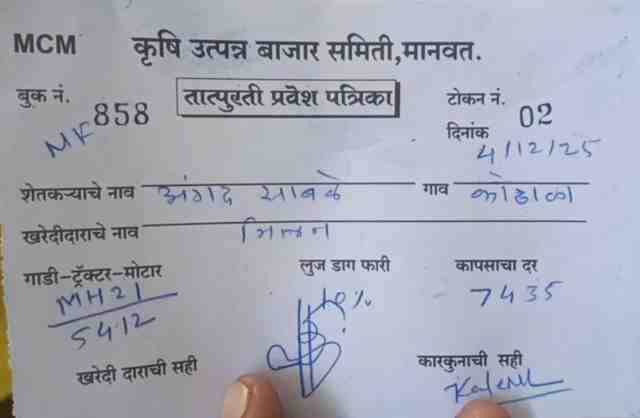 MCM कृषि उत्पन्न बाजार समिती,मानवत.
बुक नं. 858 तात्पुरती प्रवेश पत्रिका टोकन नं. 02
MF दिनांक 4/12/25
शेतकऱ्याचे नाव अंगद साबळे गाव कोहाळा
खरेदीदाराचे नाव मिलन
गाडी-ट्रॅक्टर-मोटार लुज डाग फारी कापसाचा दर
MH21 7435
5412
खरेदी दाराची सही कारकुनाची सही